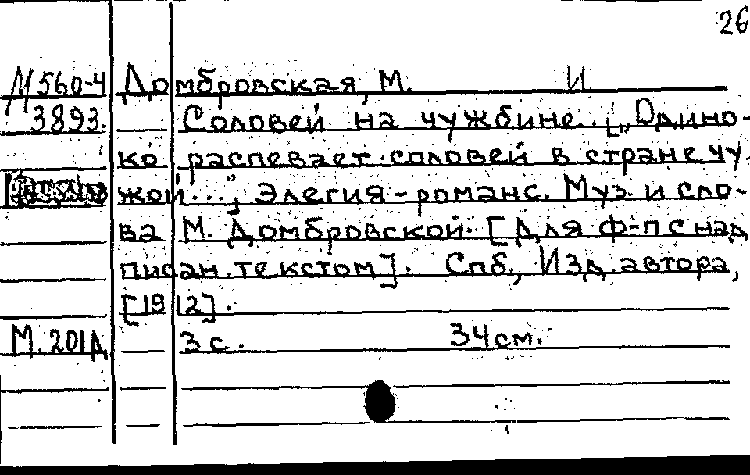 26
М 560-4 Домбровская, М. И
3893. Соловей на чужбине. [„Одино-
ко распевает соловей в стране чу
жой...", Элегия-романс. Муз и сло-
ва М. Домбровской. [Для ф-п с над
писан. текстом]. Спб., Изд. автора,
[1912].
М. 201д 3 с. 34 см.